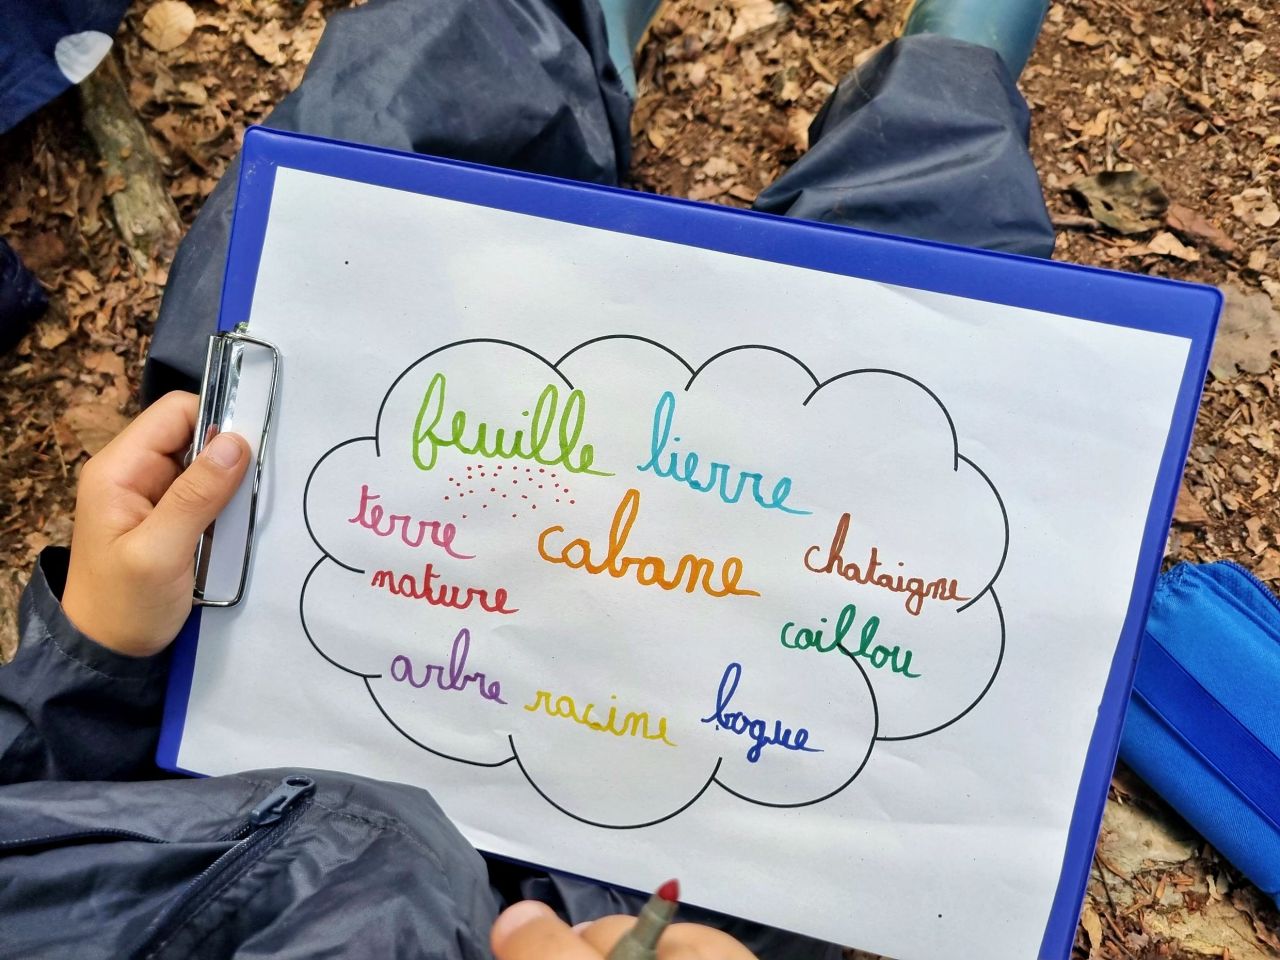 feuille lierre
terre cabane chataigne
nature caillou
arbre racine bogue